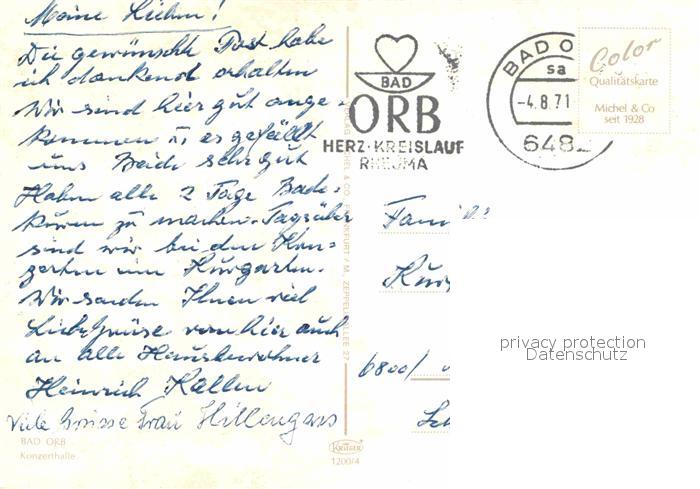 Meine Lieben!
Die gewünschte Post habe
ich dankend erhalten
Wir sind hier gut ange-
kommen u. es gefällt
uns Beide sehr gut
Haben alle 2 Tage Bade-
kuren zu machen. Tagsüber
sind wir bei den Kon-
zerten im Kurgarten.
Wir senden Ihnen viel
Liebe Grüsse von hier auch
an alle Hausbewohner
Heinrich Kallen
Viele Grüsse Frau Hillengass
BAD ORB
Konzerthalle
BAD
ORB
HERZ·KREISLAUF
RHEUMA
BAD O
sa
-4.8.71
648
Color
Qualitätskarte
Michel & Co
seit 1928
Fami
Kur
6800/
Sch
privacy protection
Datenschutz
KRÜGER
1200/4